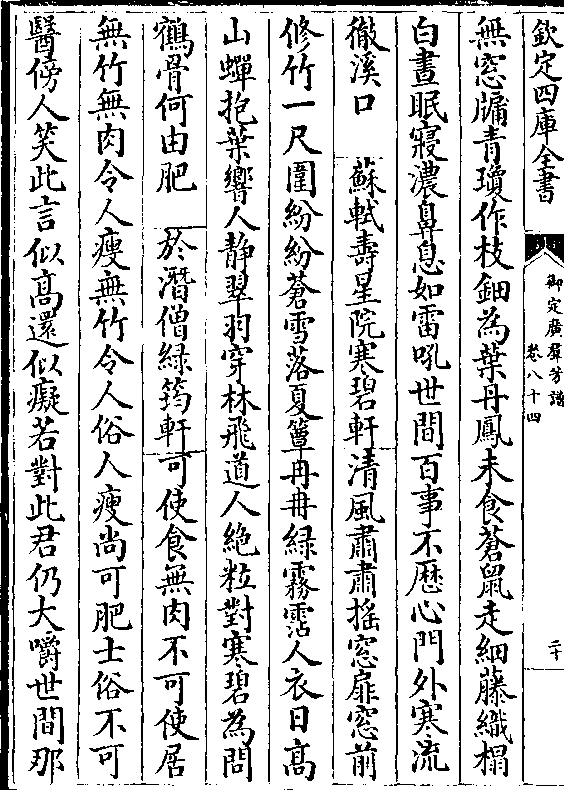 欽定四庫全書
御定廣羣芳譜
卷八十四
二十
無窓牖青瓊作枝鈿為葉丹鳳未食蒼鼠走細藤織榻
白晝眠寢濃鼻息如雷吼世間百事不厯心門外寒流
徹溪口 蘇軾壽星院寒碧軒清風肅肅揺窓扉窓前
修竹一尺圍紛紛蒼雪落夏簟冉冉緑霧霑人衣日髙
山蟬抱葉響人静翠羽穿林飛道人絶粒對寒碧為問
鶴骨何由肥 於潛僧緑筠軒可使食無肉不可使居
無竹無肉令人瘦無竹令人俗人瘦尚可肥士俗不可
醫傍人笑此言似髙還似癡若對此君仍大嚼世間那